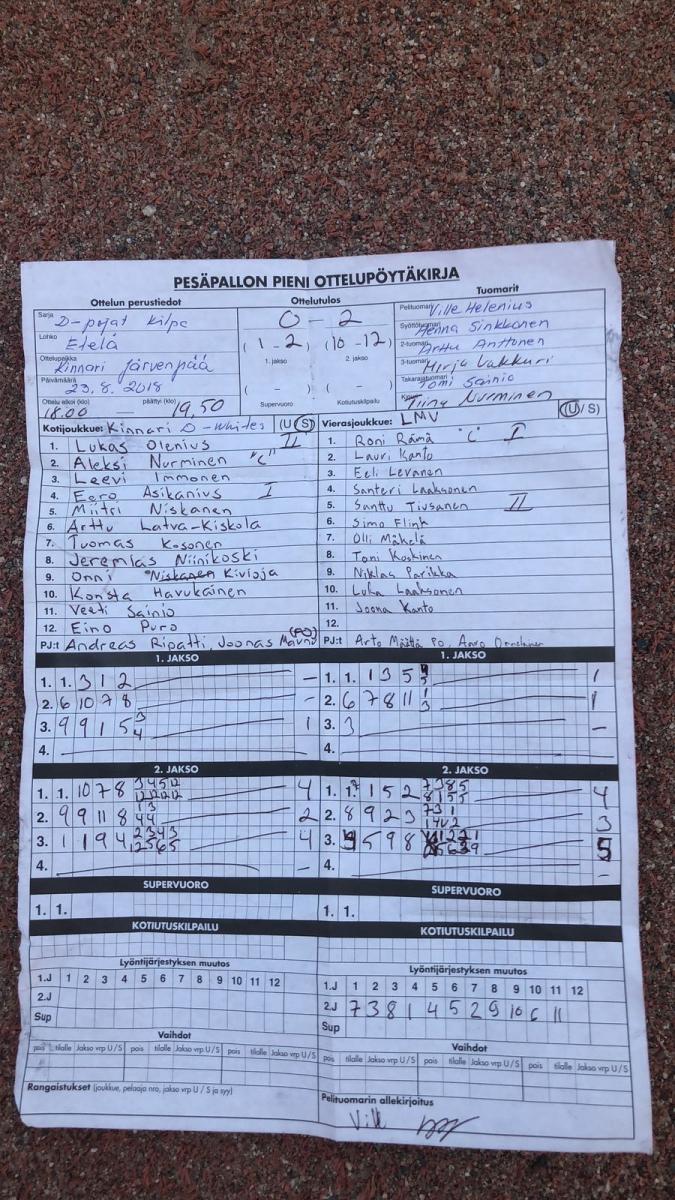 PESÄPALLON PIENI OTTELUPÖYTÄKIRJA
Ottelun perustiedot
Sarja
D-pojat Kilpa
Lohko
Etelä
Ottelupaikka
Kinnari Järvenpää
Päivämäärä
23.8.2018
Ottelu alkoi (klo) päättyi (klo)
18.00 — 19.50
Ottelutulos
0 - 2
(1 - 2) (10 - 12)
1. jakso 2. jakso
( - ) ( - )
Supervuoro Kotiutuskilpailu
Tuomarit
Pelituomari Ville Helenius
Syöttötuomari Henna Sinkkonen
2-tuomari Arttu Anttonen
3-tuomari Mirja Vakkuri
Takarajatuomari Tomi Sainio
Kirjuri Tiina Nurminen
Kotijoukkue: Kinnari D-Whites (U/S)
1. Lukas Olenius II
2. Aleksi Nurminen "C"
3. Leevi Immonen
4. Eero Asikanius I
5. Miitri Niskanen
6. Arttu Latva-Kiskola
7. Tuomas Kosonen
8. Jeremias Niinikoski
9. Onni Niskanen Kivioja
10. Konsta Havukainen
11. Veeti Sainio
12. Eino Puro
PJ:t Andreas Ripatti, Joonas (PO)
Vierasjoukkue: LMV (U/S)
1. Roni Rämä "C" I
2. Lauri Kanto
3. Eeli Levanen
4. Santeri Laaksonen
5. Santtu Tiusanen II
6. Simo Flink
7. Olli Mäkelä
8. Toni Koskinen
9. Niklas Parikka
10. Luka Laaksonen
11. Joona Kanto
12.
PJ:t Arto Määttä PO,
1. JAKSO
1. 1. 3 1 2 –
2. 6 10 7 8 –
3. 9 9 1 5 3 4 1
4.
1. JAKSO
1. 1. 1 3 5 1
2. 6 7 8 11 1 3 1
3. 3 –
4.
2. JAKSO
1. 1. 10 7 8 3 4 5 12 4
12 12 12 12
2. 9 9 11 8 1 3 2
4 4
3. 1 1 9 4 2 3 4 3 4
12 5 6 5
4. –
2. JAKSO
1. 1. 1 5 2 7 3 8 5 4
8 1 5 5
2. 8 9 2 3 7 3 1 3
3. 9 5 9 8 5
4. –
SUPERVUORO
1. 1.
SUPERVUORO
1. 1.
KOTIUTUSKILPAILU
KOTIUTUSKILPAILU
Lyöntijärjestyksen muutos
1.J 1 2 3 4 5 6 7 8 9 10 11 12
2.J
Sup
Lyöntijärjestyksen muutos
1.J 1 2 3 4 5 6 7 8 9 10 11 12
2.J 7 3 8 1 4 5 2 9 10 6 11
Sup
Vaihdot
pois tilalle Jakso vrp U/S pois tilalle Jakso vrp U/S pois tilalle Jakso vrp U/S
Vaihdot
pois tilalle Jakso vrp U/S pois tilalle Jakso vrp U/S pois tilalle Jakso vrp U/S
Rangaistukset (joukkue, pelaaja nro, jakso vrp U / S ja syy)
Pelituomarin allekirjoitus
Ville